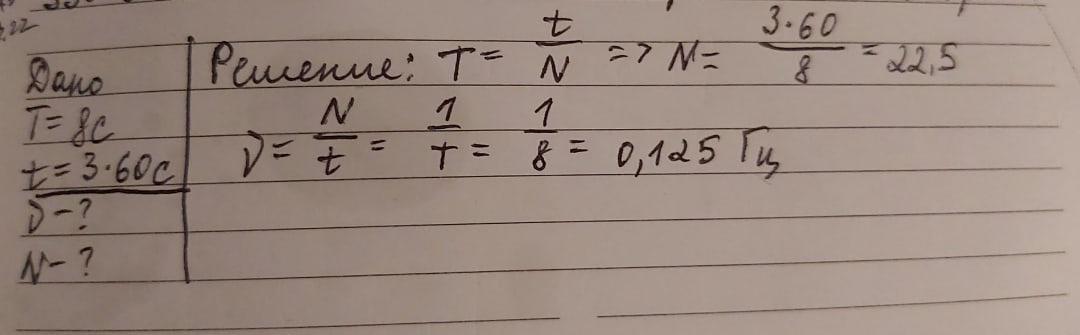 22
Дано
T = 8с
t = 3·60с
ν - ?
N - ?
Решение: T = t/N => N = 3·60/8 = 22,5
ν = N/t = 1/T = 1/8 = 0,125 Гц